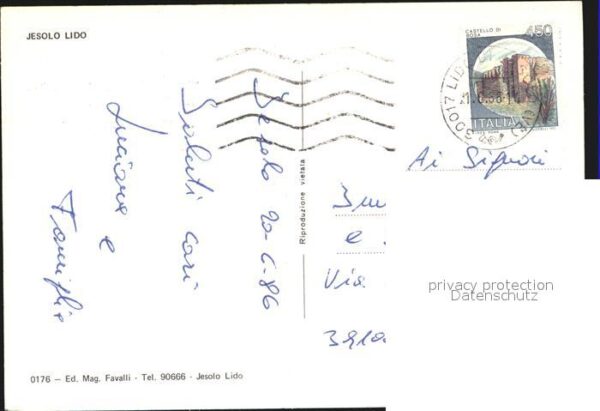 JESOLO LIDO
CASTELLO DI
BOSA
450
ITALIA
30017 LID
Jesolo 20-6-86
Saluti cari
Luciana e
Famiglia
Riproduzione vietata
Ai Signori
e
Via
privacy protection
Datenschutz
0176 – Ed. Mag. Favalli - Tel. 90666 - Jesolo Lido